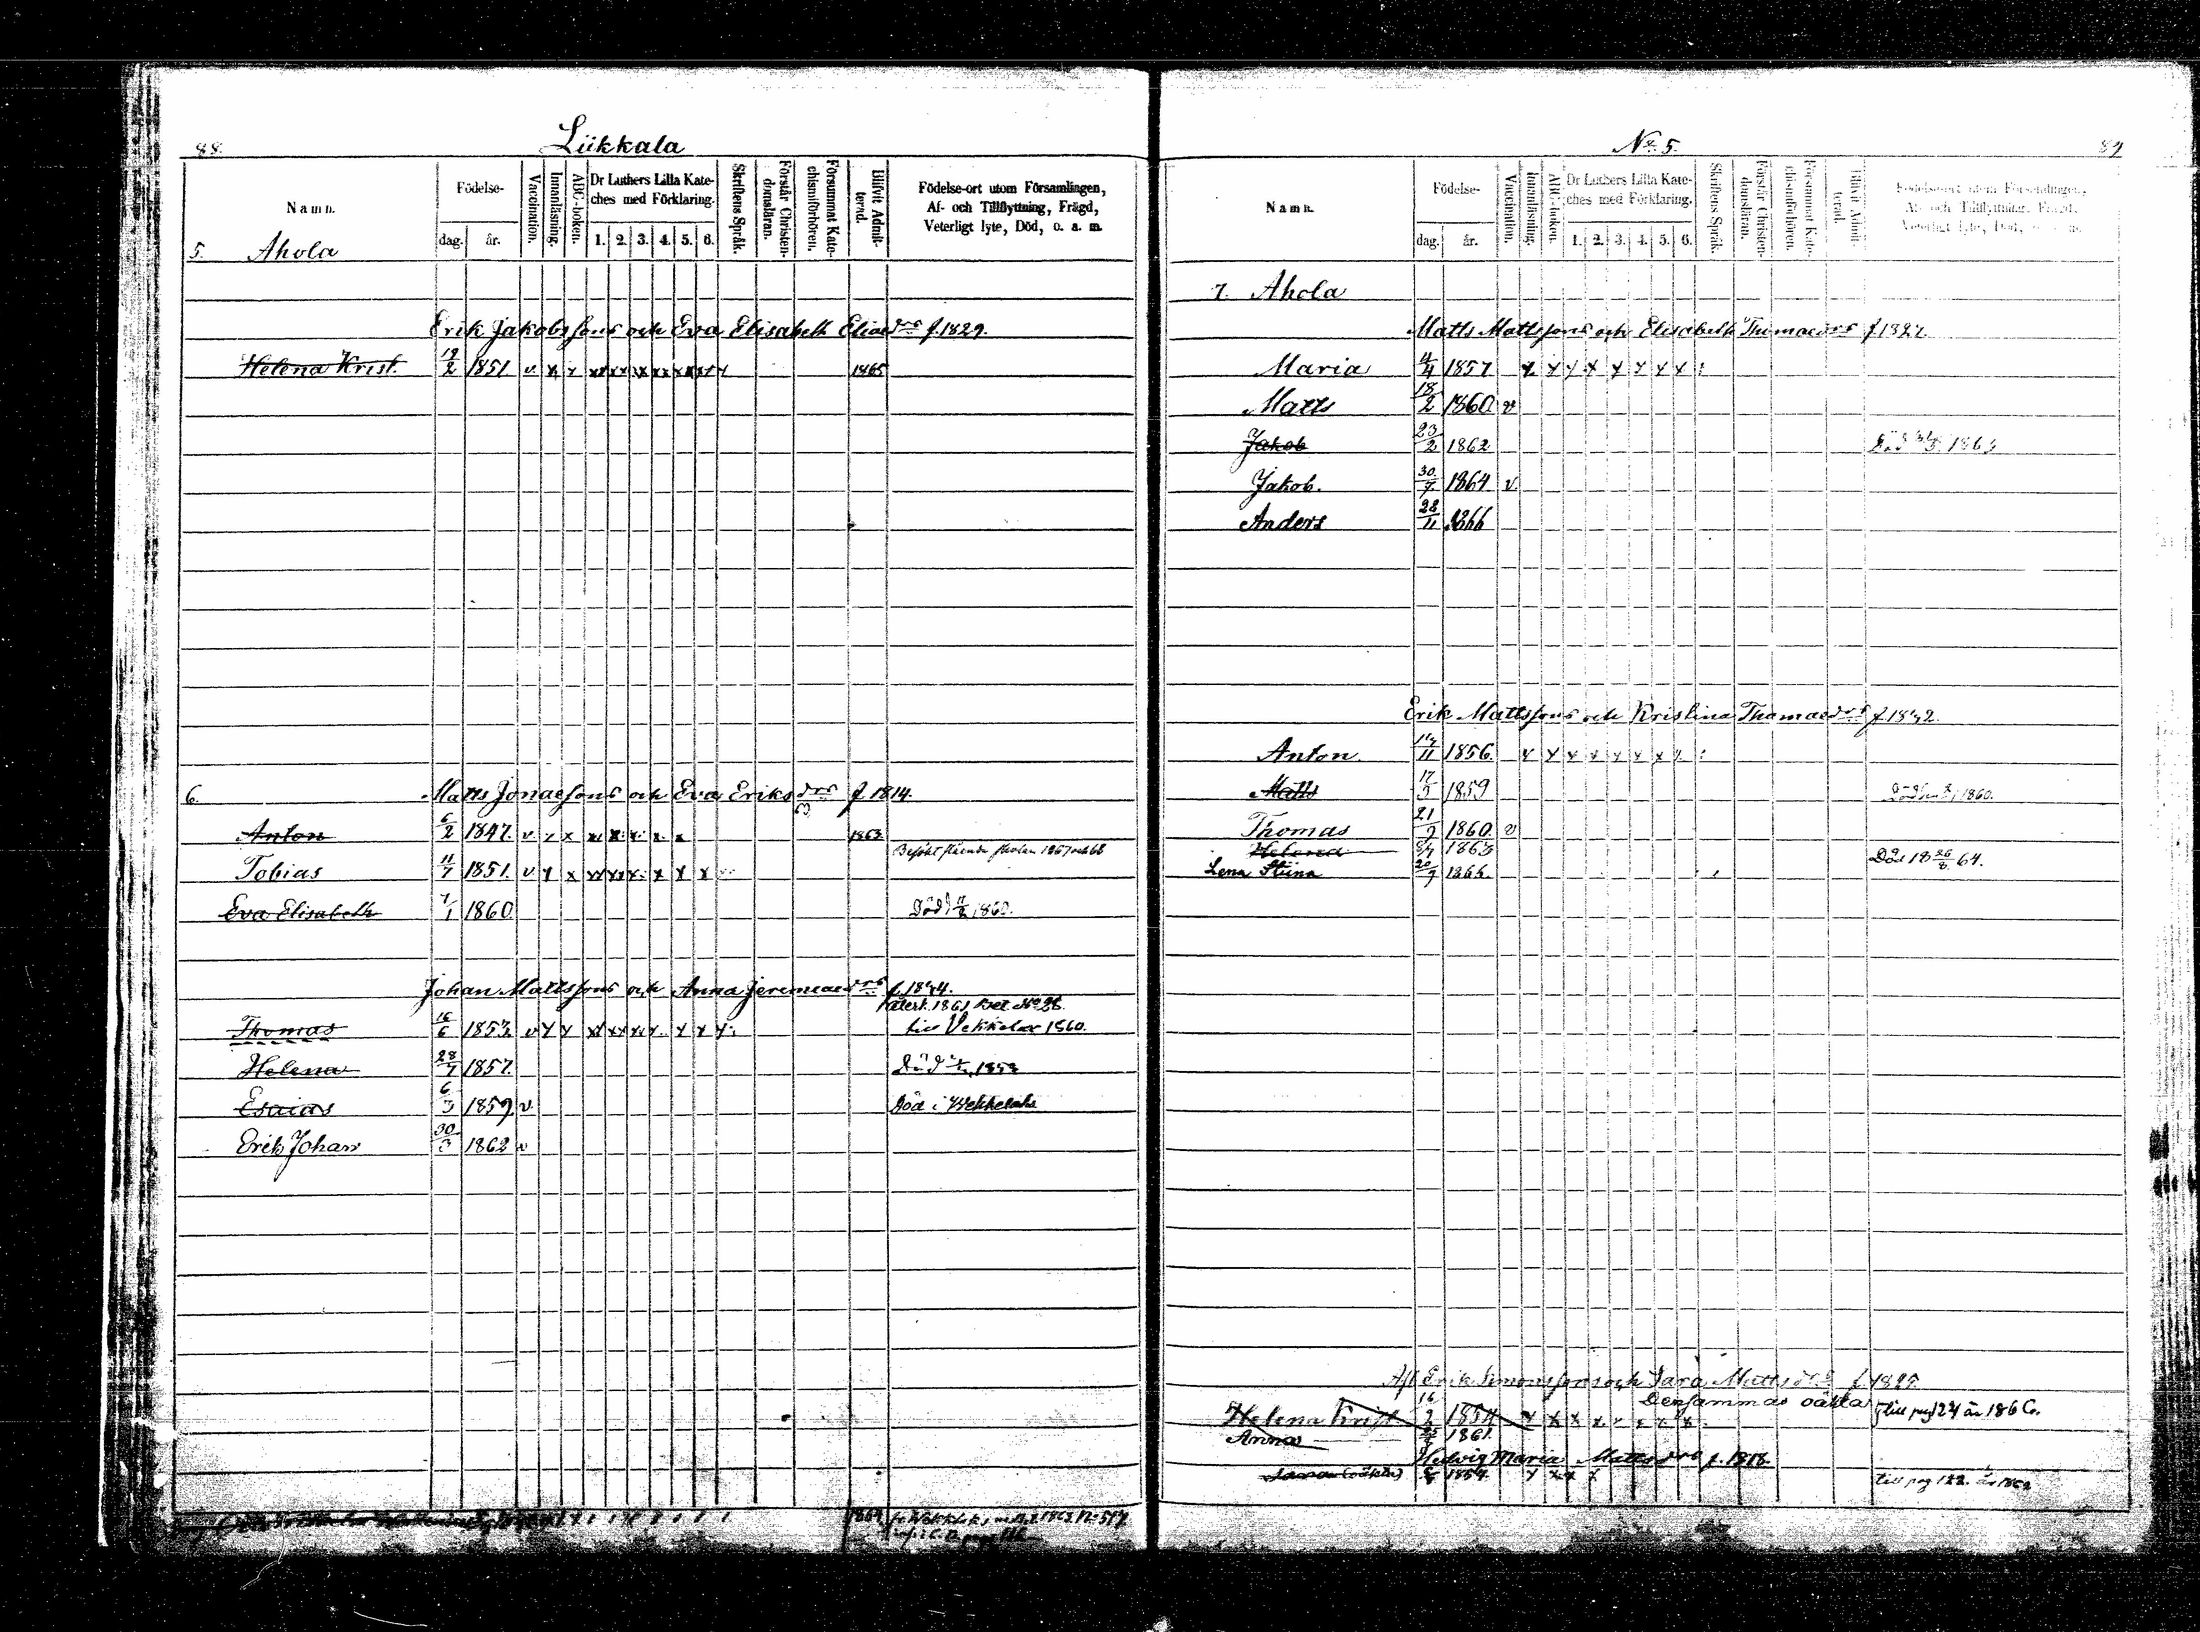 88. Liikkala
Namn. Födelse- dag. år. Vaccination. Innanläsning. ABC-boken. Dr Luthers Lilla Kateches med Förklaring. 1. 2. 3. 4. 5. 6. Skriftens Språk. Förstår Christendomsläran. Försummat Katechismiförhören. Blifvit Admitterad. Födelse-ort utom Församlingen, Af- och Tillflyttning, Frägd, Veterligt lyte, Död, o. a. m.
5. Ahola
Erik Jakobssons och Eva Elisabeth Eliaedrs f. 1829.
Helena Krist. 19/2 1851 v x x 1865
6. Matts Jonaesons och Eva Eriksdrs f 1814.
Anton 6/2 1847. v x x 1863
Besökt skolan 1867 och 68
Tobias 11/7 1851. v x x
Eva Elisabeth 7/1 1860 Död 1860.
Johan Mattssons och Anna Jeremiaedrs
återk. 1861 Bet. No 28.
Thomas 16/6 1853 v x x till Vekkelax 1860.
Helena 28/7 1857. Död
Esaias 6/3 1859 v. Död i Wekkelaks
Erik Johan 30/3 1862 v
1864
No. 5. 89
Namn. Födelse- dag. år. Vaccination. Innanläsning. ABC-boken. Dr Luthers Lilla Kateches med Förklaring. 1. 2. 3. 4. 5. 6. Skriftens Språk. Förstår Christendomsläran. Försummat Katechismiförhören. Blifvit Admitterad. Födelseort utom Församlingen, Af- och Tillflyttning, Frägd, Veterligt lyte, Död, o. a. m.
7. Ahola
Matts Mattssons och Elisabeth Thomaedrs f 1827.
Maria 4/4 1857 x x x x x x x x
Matts 18/2 1860. v
Jakob 23/2 1862 Död
Jakob. 30/7 1864 v.
Anders 28/11 1866
Erik Mattssons och Kristina Thomaedrs
Anton. 1856. x x x x x x x x
Matts 17/5 1859 Död 1860.
Thomas 21/9 1860. v
Helena 1863 Död 18 26/8 64.
Lena Stiina 20/9 1866.
Af Erik Simonssons och Sara Mattsdrs
Densammas oäkta
Helena Krist 16/2 1854 x x x x till pag 124
Anna 1861.
Hedvig Maria Mattsdrs f. 1818.
(oäkta) 1854. x x x x till pag 122.